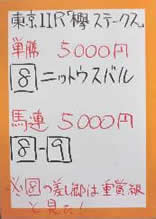 東京11R「欅ステークス」
単勝 5000円
8 ニットウスバル
馬連 5000円
8-9
※8の差し脚は重賞級
と見た!!